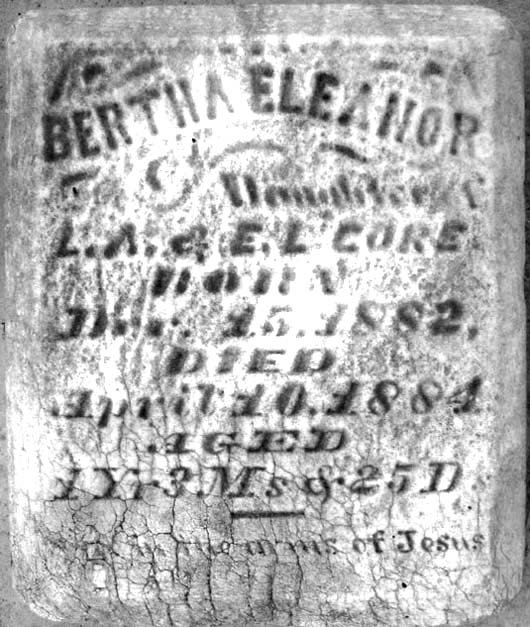 BERTHA ELEANOR
Daughter of
L. A. & E. L. CORE
BORN
Dec. 15, 1882,
DIED
April 10, 1884
AGED
1 Y. 3 Ms & 25 D.
in the arms of Jesus